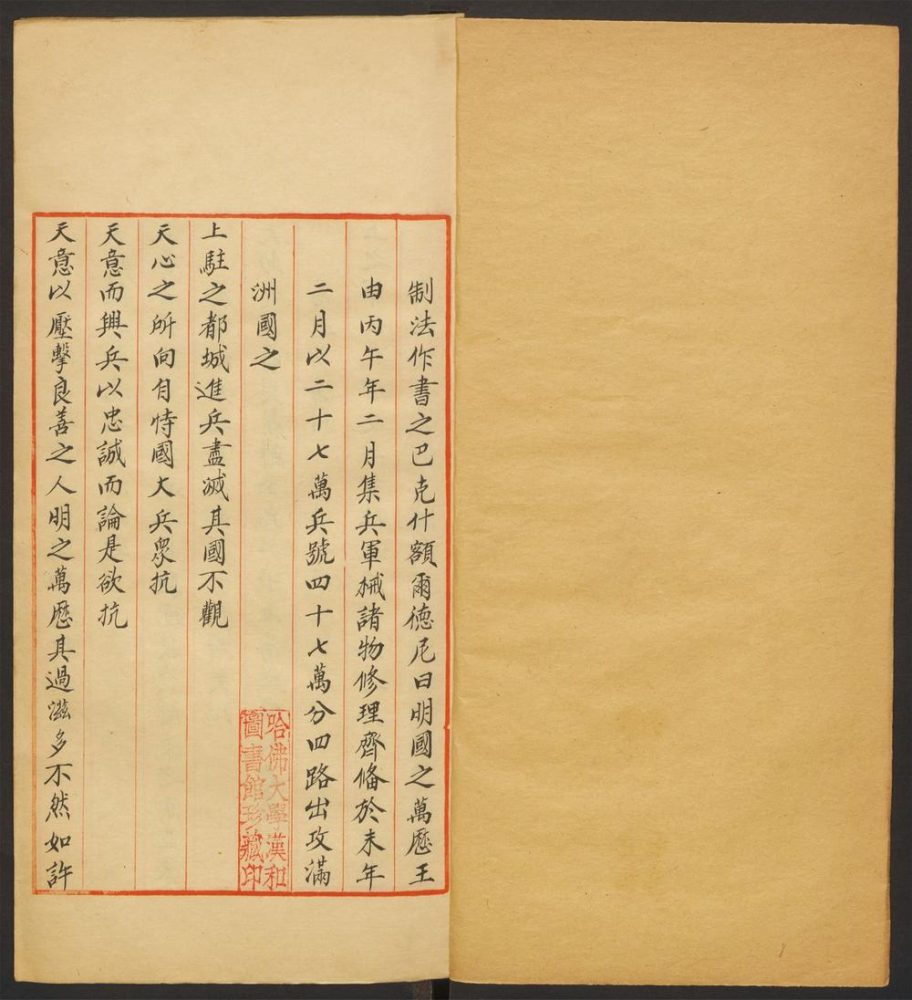 制法作書之巴克什額爾德尼曰明國之萬曆王
由丙午年二月集兵軍械諸物修理齊備於未年
二月以二十七萬兵號四十七萬分四路出攻滿
洲國之
上駐之都城進兵盡滅其國不觀
天心之所向自恃國大兵衆抗
天意而興兵以忠誠而論是欲抗
天意以壓擊良善之人明之萬曆其過滋多不然如許
哈佛大學漢和
圖書館珍藏印